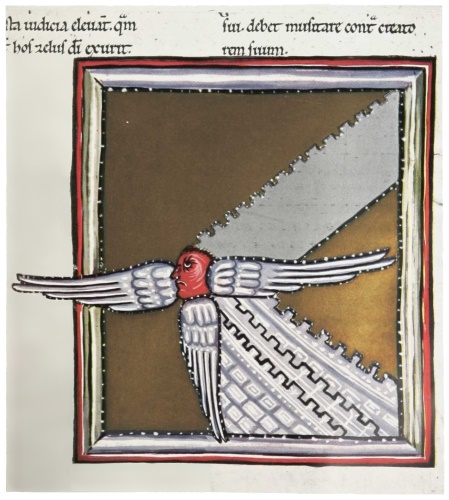 iudicia eleuāt. qm̄
hos zelus dī excurit.
sui. debet musitare contᵃ creato
rem suum.